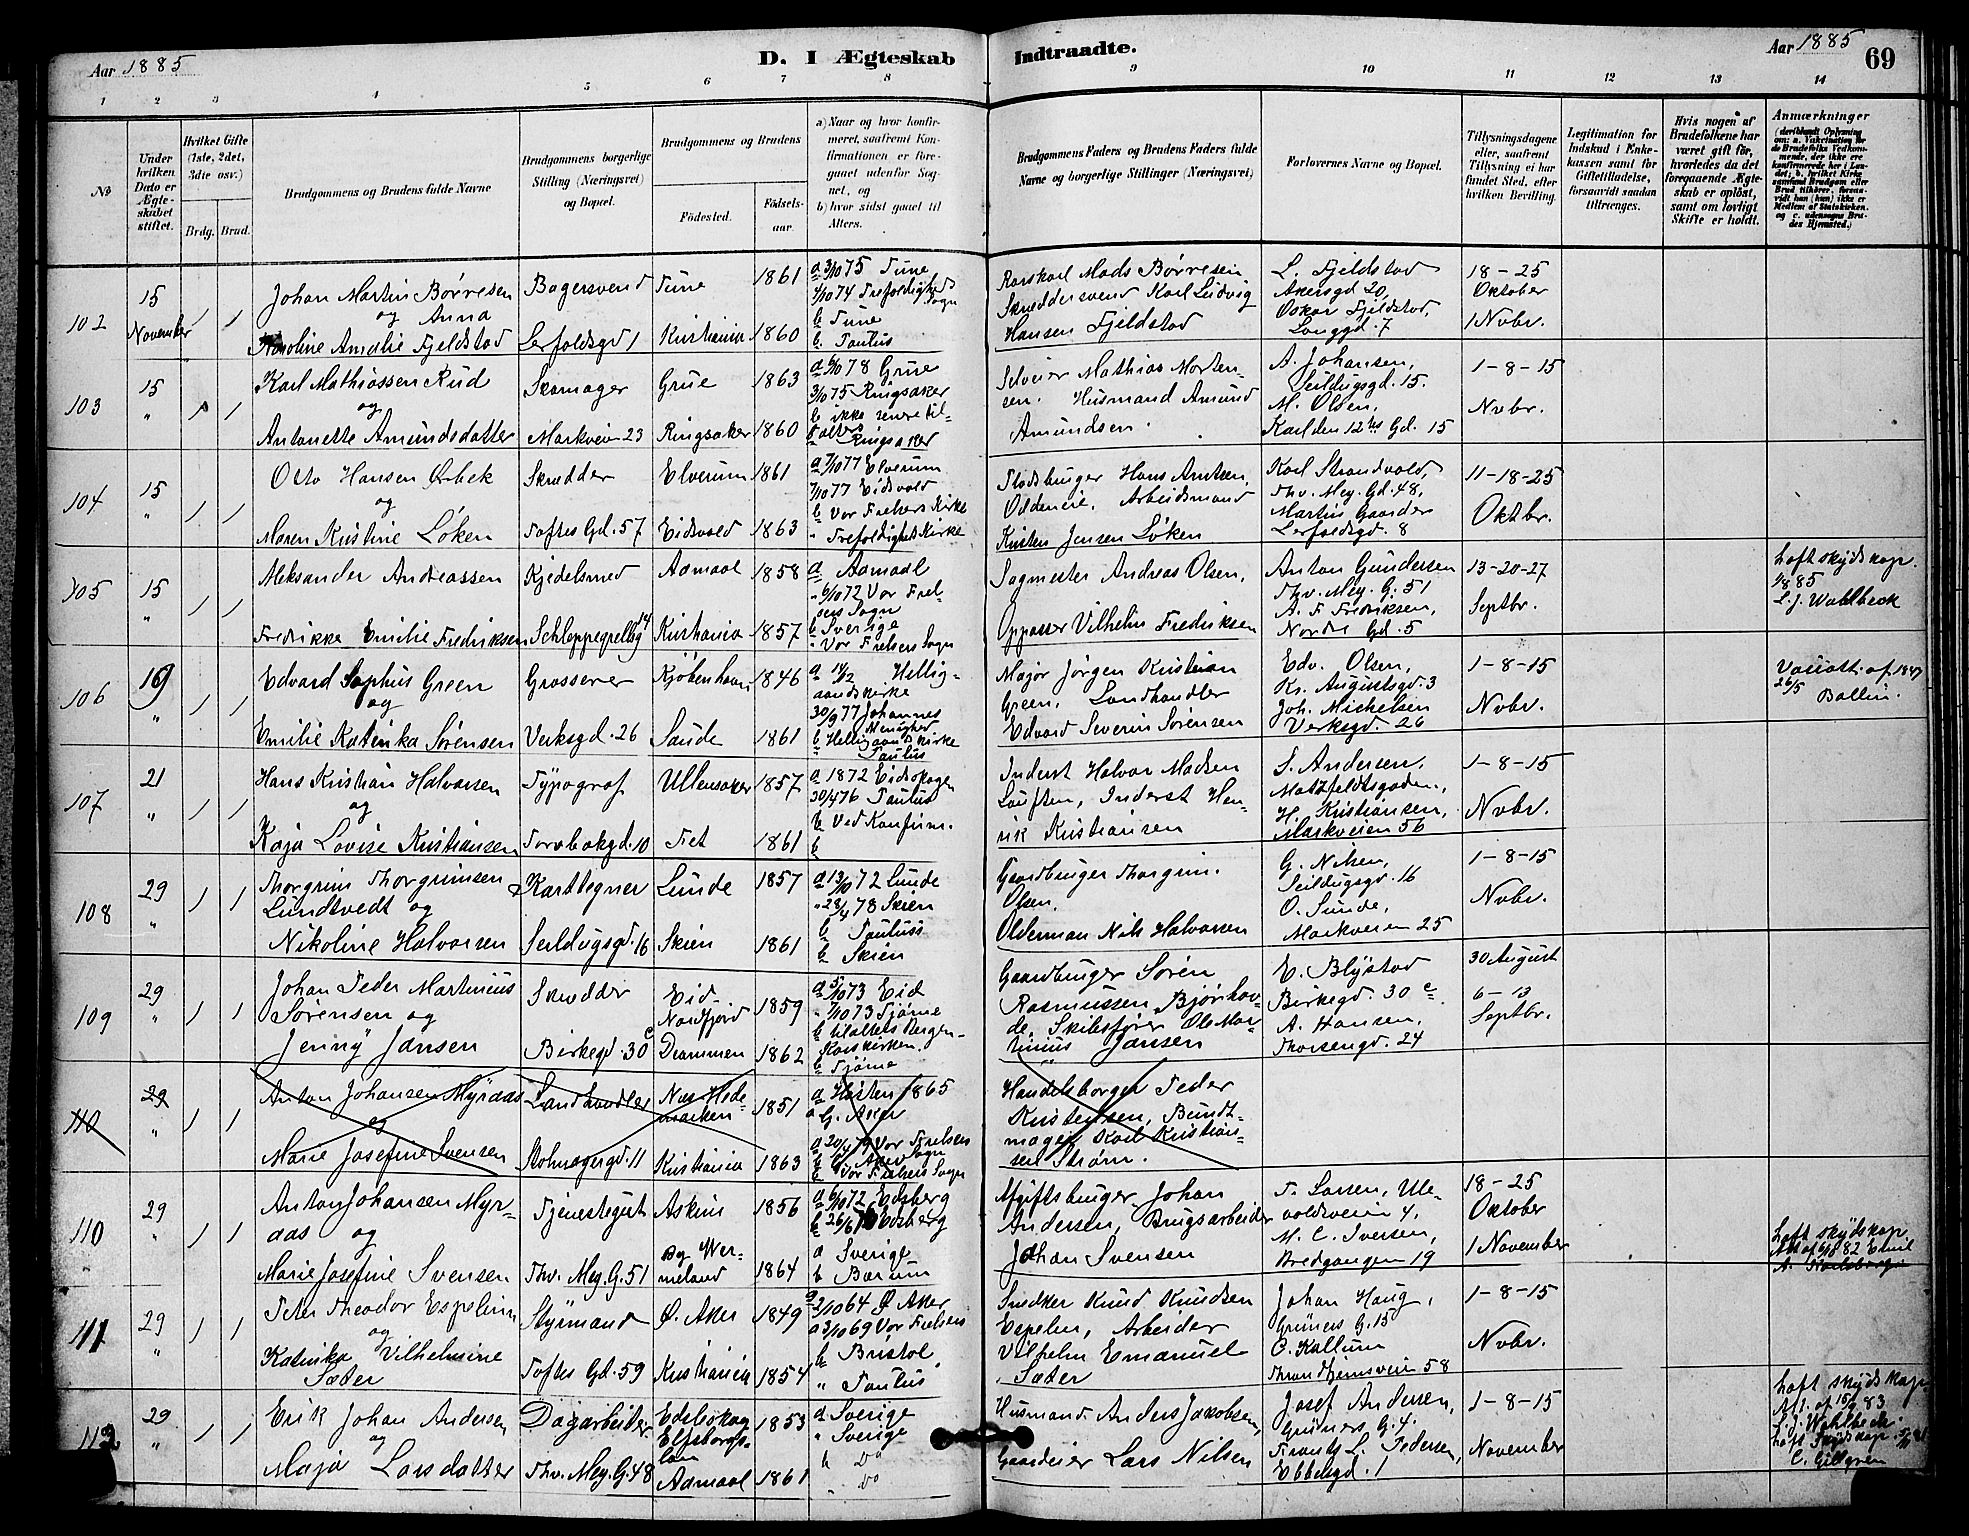 Aar 1885
D. I Ægteskab
Indtraadte.
Aar 1885
69
1 2 3 4 5 6 7 8
9 10 11 12 13 14
No
Under hvilken Dato er Ægteskabet stiftet.
Hvilket Gifte (1ste, 2det, 3die osv.)
Brdg. Brud.
Brudgommens og Brudens fulde Navne
Brudgommens borgerlige Stilling (Næringsvei) og Bopæl.
Brudgommens og Brudens
Fødested.
Fødselsaar.
a) Naar og hvor konfirmeret, saafremt Konfirmationen er foregaaet udenfor Sognet, og
b) hvor sidst gaaet til Alters.
Brudgommens Faders og Brudens Faders fulde Navne og borgerlige Stillinger (Næringsvei)
Forlovernes Navne og Bopæl.
Tillysningsdagene eller, saafremt Tillysning ei har fundet Sted, efter hvilken Bevilling.
Legitimation for Indskud i Enkekassen samt for Giftetilladelse, forsaavidt saadan tiltrænges.
Hvis nogen af Brudefolkene har været gift før, hvorledes da det foregaaende Ægteskab er opløst, samt om lovligt Skifte er holdt.
Anmærkninger
102
15 November
1 1
Johan Martin Børresen
og Anna
Karoline Amalie Fjeldstad
Bagersvend
Lerfoldsgd 1
Tune
Kristiania
1861
1860
a 3/10 75 Tune
4/10 74 Trefoldigheds Sogn
b Tune
b. Paulus
Karskarl Mads Børresen
Skræddersvend Karl Ludvig
Hansen Fjeldstad
L. Fjeldstad
Akersgd 20,
Oskar Fjeldstad,
Langgd. 7
18-25
Oktober
1 Nvbr.
103
15 "
1 1
Karl Mathiassen Rud
og
Antonette Amundsdatter
Skomager
Markveien 23
Grue
Ringsaker
1863
1860
a 6/10 78 Grue
3/10 75 Ringsaker
b ikke senere til-
alters
Ringsaker
Selveier Mathias Morten-
sen. Husmand Amund
Amundsen.
A. Johansen,
Seildugsgd. 15.
M. Olsen,
Karl den 12tes Gd. 15
1-8-15
Nvbr.
104
15 "
1 1
Otto Hansen Ørbek
og
Maren Kristine Løken
Skrædder
Toftes Gd. 57
Elverum
Eidsvold
1861
1863
a 7/10 77 Elverum
7/10 77 Eidsvold
b Vor Frelsers Kirke
" Trefoldigheds Kirke
Pladsbruger Hans Arntsen,
Oldereie, Arbeidsmand
Kristen Jensen Løken
Karl Strandvold,
Thv. Mey. Gd. 48,
Martin Gaarder
Lerfoldsgd. 8
11-18-25
Oktbr.
105
15 "
1 1
Aleksander Andreassen
Fredrikke Emilie Fredriksen
Kjedelsmed
Schleppegrellsg 14
Aamaal
Kristiania
1858
1857
a Aamaal
" 6/10 72 Vor Frel-
sers Sogn
b Sverige
" Vor Frelsers Sogn
Sagmester Andreas Olsen,
Oppasser Vilhelm Fredriksen
Anton Gundersen
Thv. Mey. G. 51
A. F. Fredriksen,
Nordre Gd. 5
13-20-27
Septbr.
Løst skydskap.
1/8 85
L. J. Wahlbeck
106
19 "
1 1
Edvard Sophus Green
og
Emilie Katinka Sørensen
Grosserer
Verksgd. 26
Kjøbenhavn
Saude
1846
1861
a Hellig-
aandskirke
30/9 77 Johannes
Menighed
b Helligaandskirke
" Paulus
Major Jørgen Kristian
Green, Landhandler
Edvard Severin Sørensen
Edv. Olsen,
Kr. Augustsgd. 3
Joh. Michelsen
Verksgd. 26
1-8-15
Nvbr.
Vacatt. af 1847
26/5 Ballin.
107
21 "
1 1
Hans Kristian Halvorsen
og
Kaja Lovise Kristiansen
Typograf
Torvbakgd. 10
Ullensaker
Fet
1857
1861
a 1872 Eidskogen
30/4 76 Paulus
b Ved Konfirm.
b
Inderst Halvor Madsen
Løuften, Inderst Hen-
rik Kristiansen
S. Andersen,
Mathfeldtsgaden,
H. Kristiansen,
Markveien 56
1-8-15
Nvbr.
108
29 "
1 1
Thorgrim Thorgrimsen
Lundtvedt og
Nikoline Halvorsen
Karttegner
Seildugsgd. 16
Lunde
Skien
1857
1861
a 13/10 72 Lunde
" 28/4 78 Skien
b Paulus
b Skien
Gaardbruger Thorgrim
Olsen,
Olderman Nils Halvorsen
G. Nilsen,
Seildugsgd. 16
O. Sunde,
Markveien 25
1-8-15
Nvbr.
109
29 "
1 1
Johan Peder Martinius
Sørensen og
Jenny Jansen
Skrædder
Birkegd. 30 c
Eid-
Nordfjord
Drammen
1859
1862
a 5/10 73 Eid
" 7/10 73 Tjøme
b tilalters Bergen-
Korskirken.
b Tjøme
Gaardbruger Sørén
Rasmussen Bjørhov-
de, Skibsfører Ole Mar-
tinius Jansen
E. Blystad
Birkegd. 30 c.
A. Hansen,
Thorsengd. 24
30 August
6-13
Septbr.
110
29 "
1 1
Anton Johansen Myraas
og
Marie Josefine Svensen
Landhandler
Holmagergd. 11
Næs Hede-
marken
Kristiania
1851
1863
a Høsten 1865
G. Aker
a 20/4 79 Vor Frelsers Sogn
b Aker
b Vor Frelsers Sogn
Handelsborger Peder
Kristensen, Bundt-
mager Karl Kristian-
sen Strøm.
110 "
29 "
1 1
Anton Johansen Myr-
aas og
Marie Josefine Svensen
Tjenestegut
Thv. Mey. G. 51
Askim
By Wer-
meland
1856
1864
a 6/10 72 Edsberg
b 26/6 Edsberg
a Sverige
b Bærum
Afgiftsbruger Johan
Andersen, Brugsarbeider
Johan Svensen
T. Larsen, Ule-
voldsveien 4,
M. C. Iversen,
Bredgangen 19
18-25
Oktober
1 November
Løst skydskap
Att af 6/8 82 Emil
A. Karlsberg
111
29 "
1 1
Peter Theodor Espelin
og
Katinka Vilhelmine
Sæter
Styrmand
Toftes Gd. 59
Ø. Aker
Kristiania
1849
1854
a 2/10 64 Ø Aker
a 3/10 69 Vor Frelsers
b Bristol
" Paulus
Snedker Knud Knudsen
Espelin, Arbeider
Vilhelm Emanuel
Sæter
Johan Haug,
Grüners G. 15
C. Kallum
Throndhjemsveien 58
1-8-15
Nvbr.
112
29 "
1 1
Erik Johan Andersen
og
Maja Larsdatter
Dagarbeider
Thv. Mey. G. 48
Edelskog
Elfsborgs-
län
Aamaal
1853
1861
a Sverige
" Sverige
b Do
" Do
Husmand Anders Jakobsen,
Gaardeier Lars Nilsen
Josef Andersen,
Grüners G. 4.
Frants L. Pedersen,
Ebbelsgd. 1
1-8-15
November
Løst skydskap
Att. af 15/9 83
L. J. Wahlbeck.
Løst skydskap.
C. Gillgren